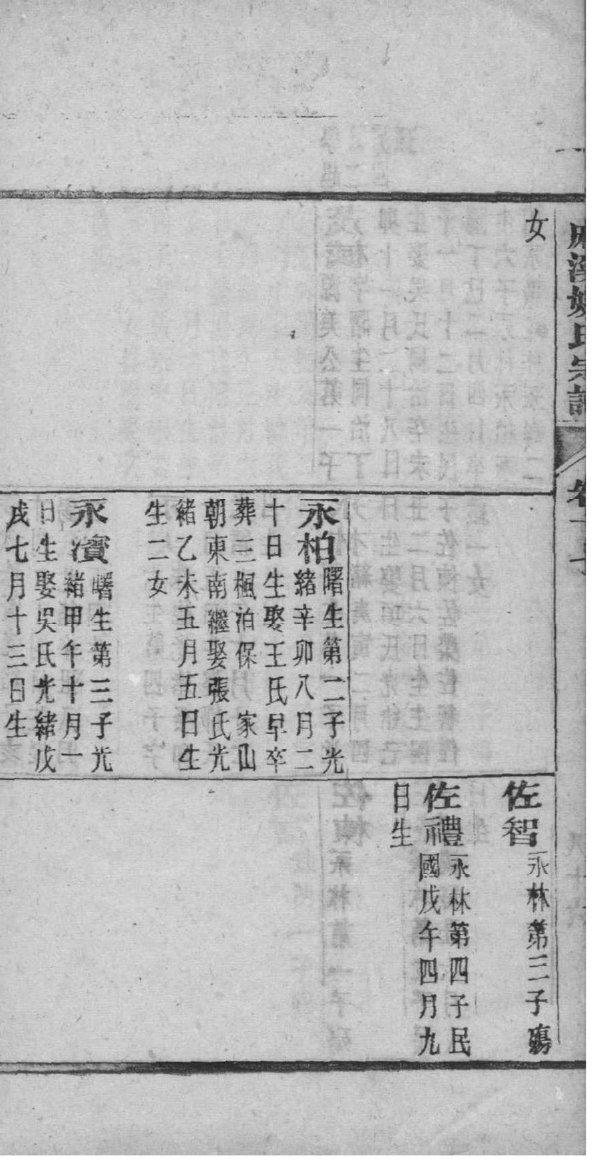 姚氏宗譜
女
永柏曙生第二子光
緒辛卯八月二
十日生娶王氏早卒
葬三楓泊保家山
朝東南繼娶張氏光
緒乙未五月五日生
生二女
永濱曙生第三子光
緒甲午十月一
日生娶吳氏光緒戊
戌七月十三日生
佐智永林第三子殤
佐禮永林第四子民
國戊午四月九
日生